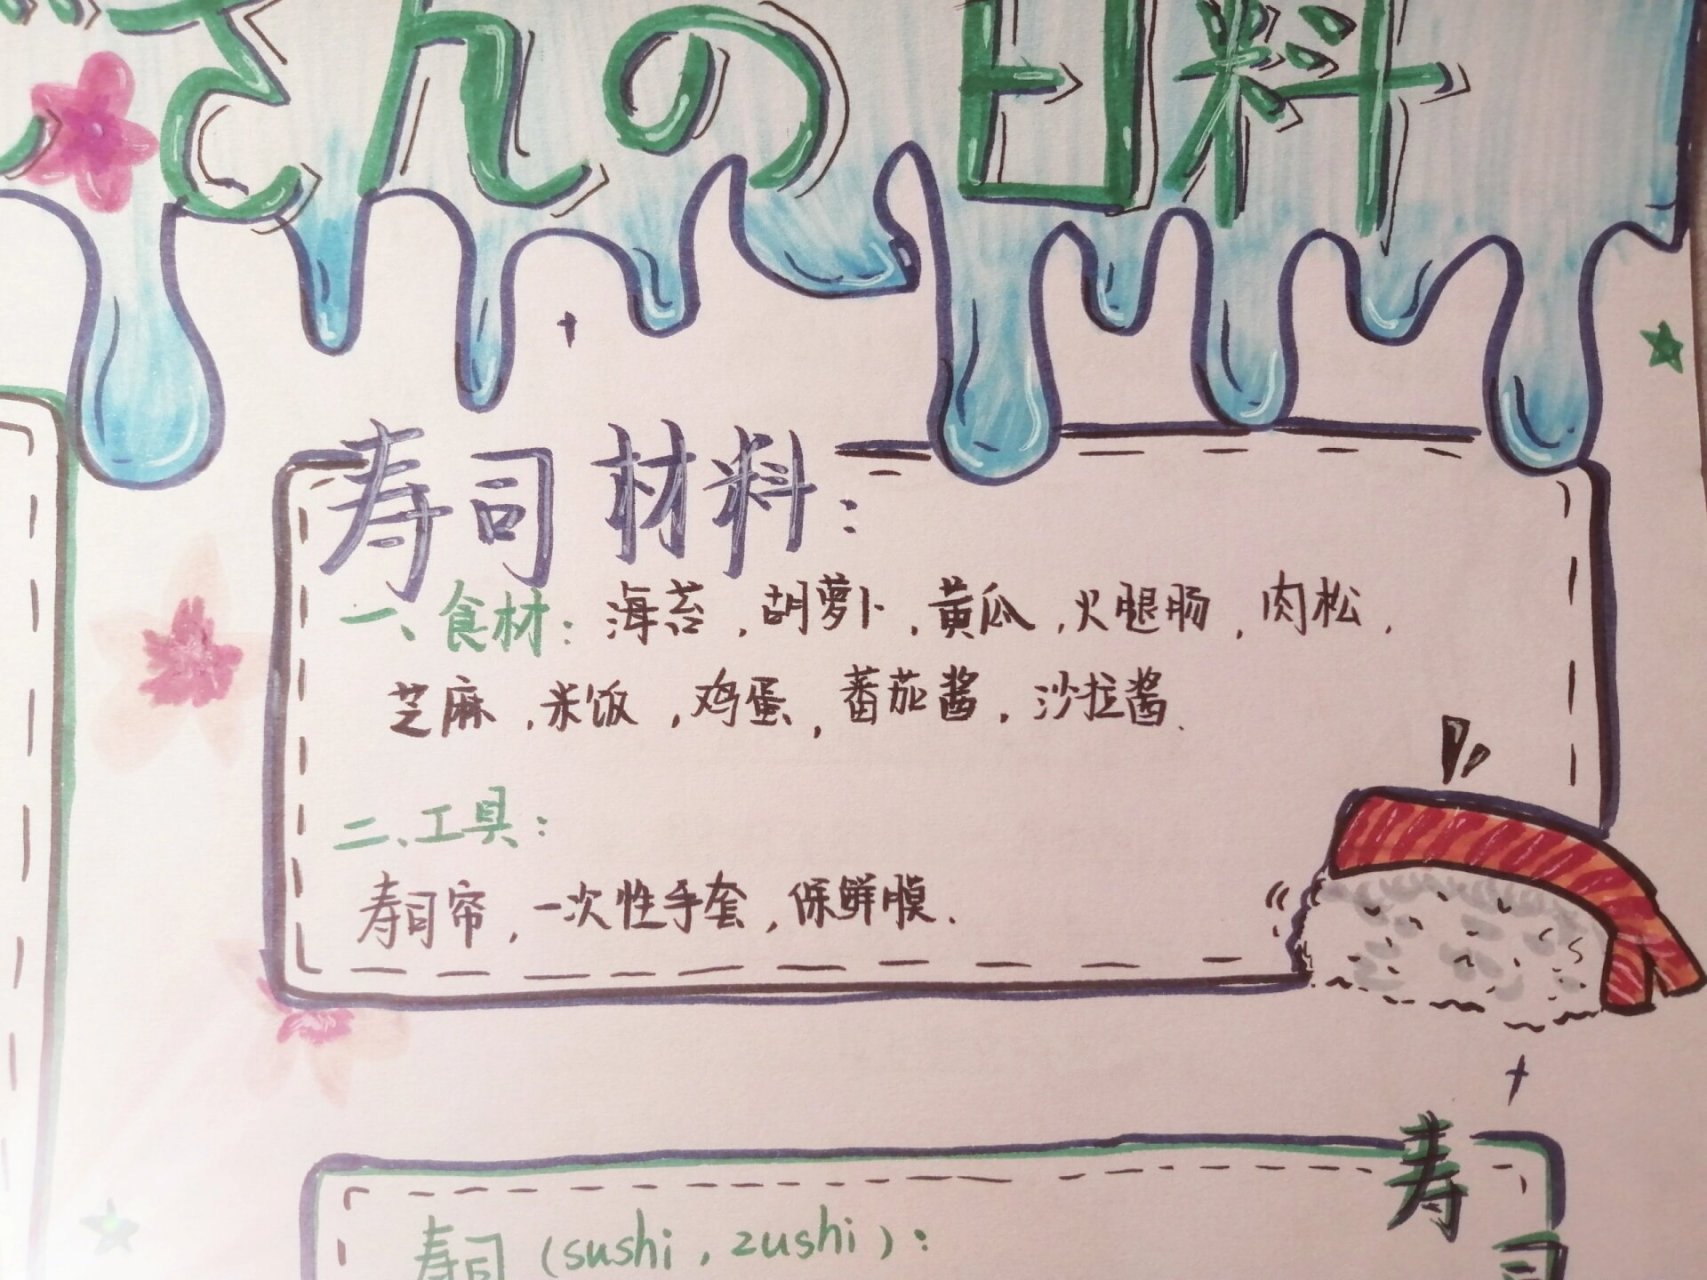 さんの日料
寿司材料:
一、食材:海苔,胡萝卜,黄瓜,火腿肠,肉松,
芝麻,米饭,鸡蛋,蕃茄酱,沙拉酱.
二、工具:
寿司帘,一次性手套,保鲜膜.
寿司
寿司(sushi,zushi):